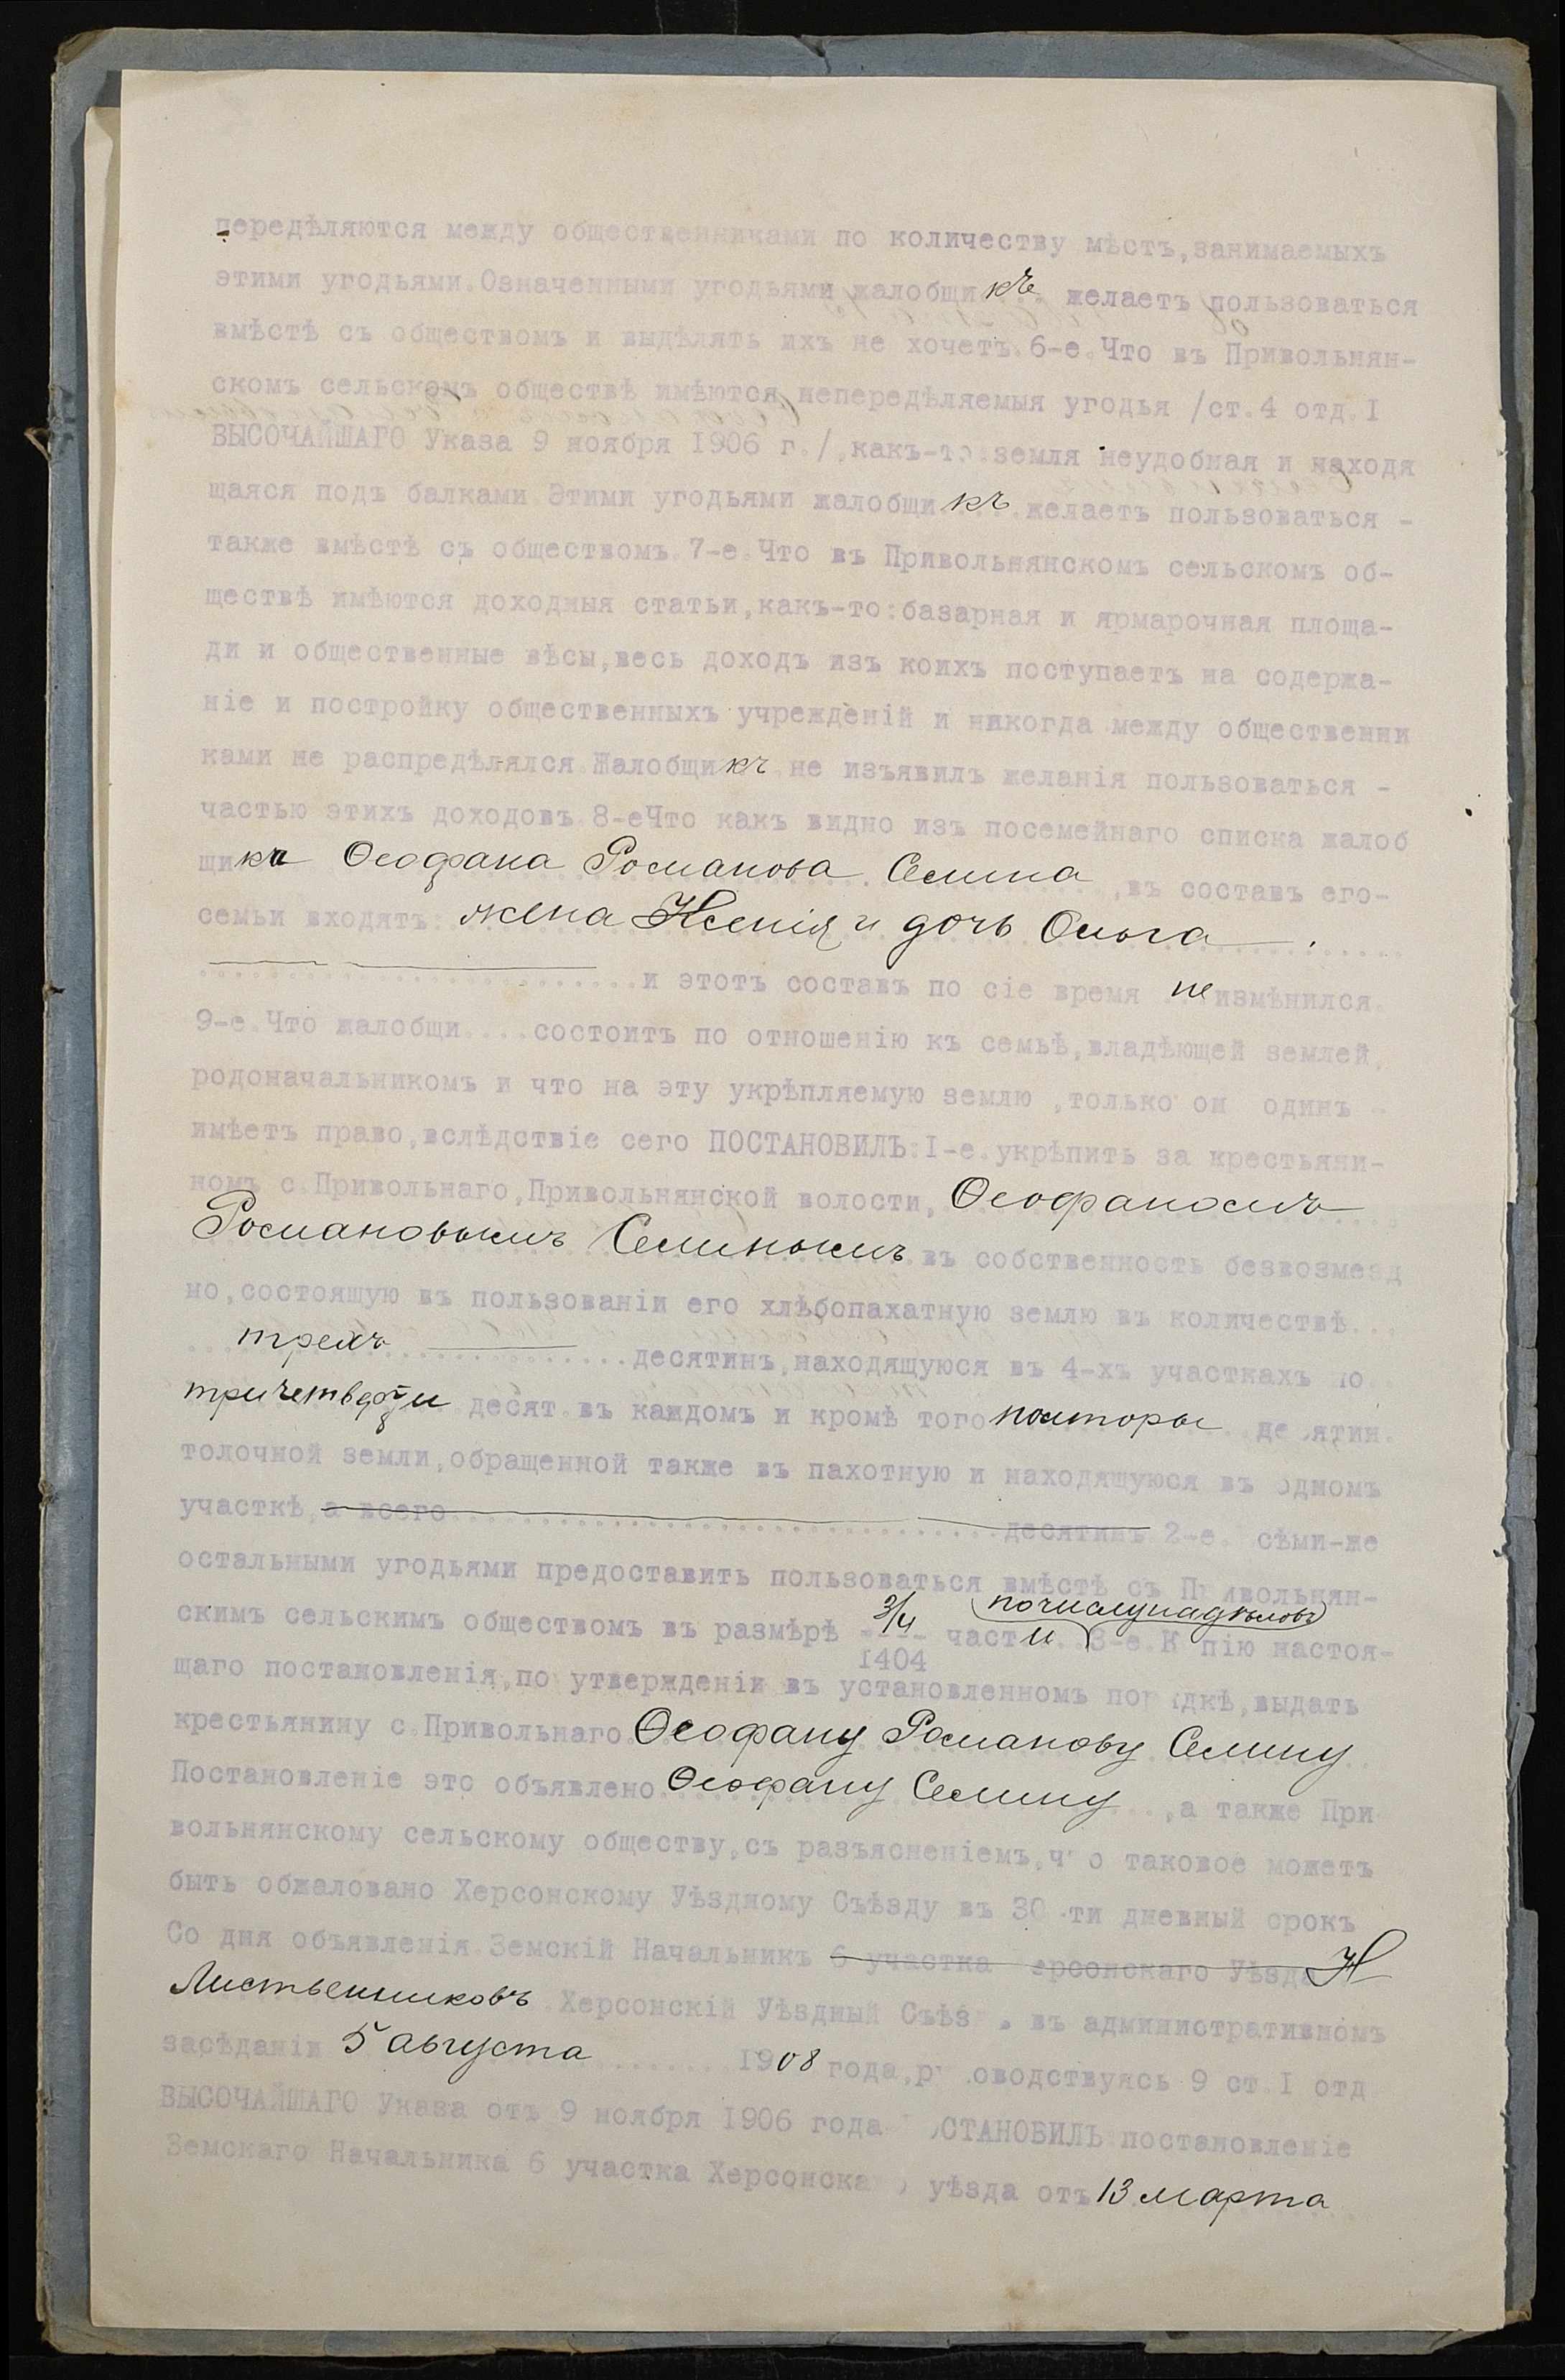 передѣляются между общественниками по количеству мѣстъ,занимаемыхъ
этими угодьями.Означенными угодьями жалобщикъ желаетъ пользоваться
вмѣстѣ съ обществомъ и выдѣлять ихъ не хочетъ.6-е.Что въ Привольнян-
скомъ сельскомъ обществѣ имѣются непередѣляемыя угодья /ст.4 отд.I
ВЫСОЧАЙШАГО Указа 9 ноября 1906 г./,какъ-то:земля неудобная и находя
щаяся подъ балками.Этими угодьями жалобщикъ желаетъ пользоваться -
также вмѣстѣ съ обществомъ.7-е.Что въ Привольнянскомъ сельскомъ об-
ществѣ имѣются доходныя статьи,какъ-то:базарная и ярмарочная площа-
ди и общественные вѣсы,весь доходъ изъ коихъ поступаетъ на содержа-
ніе и постройку общественныхъ учрежденій и никогда между общественни
ками не распредѣлялся.Жалобщикъ не изъявилъ желанія пользоваться -
частью этихъ доходовъ.8-еЧто какъ видно изъ посемейнаго списка жалоб
щика Ѳеофана Романова Семина ,въ составъ его-
семьи входятъ: жена Ксенія и дочь Ольга.
и этотъ составъ по сіе время не измѣнился.
9-е.Что жалобщи....состоитъ по отношенію къ семьѣ,владѣющей землей,
родоначальникомъ и что на эту укрѣпляемую землю ,только он одинъ -
имѣетъ право,вслѣдствіе сего ПОСТАНОВИЛЪ:I-е.укрѣпить за крестьяни-
номъ с.Привольнаго,Привольнянской волости, Ѳеофаномъ
Романовымъ Семинымъ въ собственность безвозмезд
но,состоящую въ пользованіи его хлѣбопахатную землю въ количествѣ...
трехъ десятинъ,находящуюся въ 4-хъ участкахъ по
три четверти десят.въ каждомъ и кромѣ того полторы десятин.
толочной земли,обращенной также въ пахотную и находящуюся въ одномъ
участкѣ,а всего десятинъ 2-е. сѣми-же
остальными угодьями предоставить пользоваться вмѣстѣ съ Привольнян-
скимъ сельскимъ обществомъ въ размѣрѣ 3/4 / 1404 части (по числу надѣловъ) 3-е.Копію настоя-
щаго постановленія,по утвержденіи въ установленномъ порядкѣ,выдать
крестьянину с.Привольнаго Ѳеофану Романову Семину
Постановленіе это объявлено Ѳеофану Семину ,а также При
вольнянскому сельскому обществу,съ разъясненіемъ,что таковое можетъ
быть обжаловано Херсонскому Уѣздному Съѣзду въ 30-ти дневный срокъ
Со дня объявленія.Земскій Начальникъ 6 участка Херсонскаго Уѣзда Н
Лиственниковъ Херсонскій Уѣздный Съѣздъ въ административномъ
засѣданіи 5 августа 1908 года,руководствуясь 9 ст.I отд
ВЫСОЧАЙШАГО Указа отъ 9 ноября 1906 года ПОСТАНОВИЛЪ:постановленіе
Земскаго Начальника 6 участка Херсонскаго уѣзда отъ 13 марта